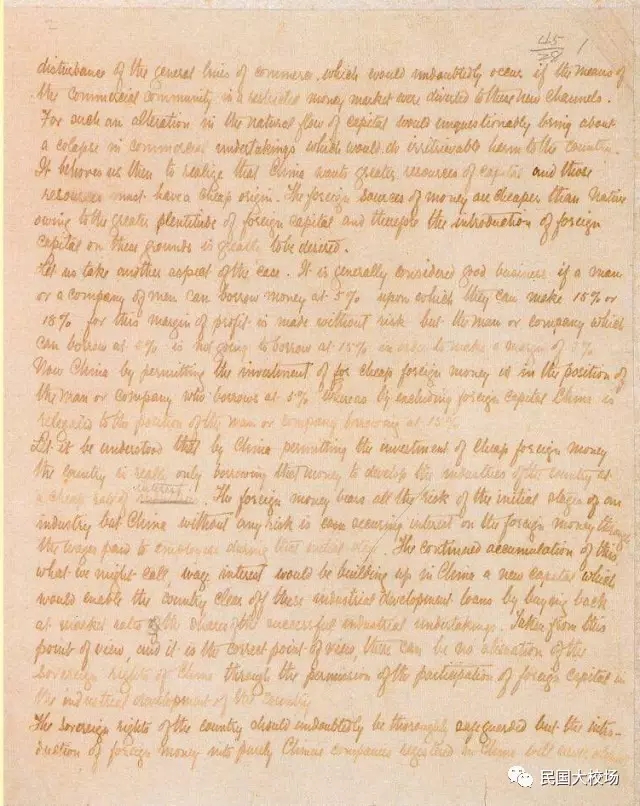 45/28 1
disturbance of the general lines of commerce which would undoubtedly occur if the means of
the commercial community in a restricted money market were diverted to these new channels.
For such an alteration in the natural flow of capital would unquestionably bring about
a colapse in commercial undertakings which would do irretrievable harm to the country.
It behoves us then to realize that China wants greater resources of capital and those
resources must have a cheap origin. The foreign sources of money are cheaper than Native
owing to the greater plentitude of foreign capital and therefore the introduction of foreign
capital on these grounds is greatly to be desired.
Let us take another aspect of the case. It is generally considered good business if a man
or a company of men can borrow money at 5% upon which they can make 15% or
18% for this margin of profit is made without risk but the man or company which
can borrow at 5% is not going to borrow at 15% in order to make a margin of 3%
Now China by permitting the investment of cheap foreign money is in the position of
the man or company who borrows at 5% whereas by excluding foreign capital China is
relegated to the position of the man or company borrowing at 15%
Let it be understood that by China permitting the investment of cheap foreign money
the country is really only borrowing that money to develop the industries of the country at
a cheap rate of interest. The foreign money bears all the risk of the initial stages of an
industry but China without any risk is accruing interest on the foreign money through
the wages paid to employees during that initial stage. The continued accumulation of this
what we might call, wage interest would be building up in China a new capital which
would enable the country clear off these industrial development loans by buying back
at market rates the shares of the successful industrial undertakings. Taken from this
point of view, and it is the correct point of view, there can be no alienation of the
sovereign rights of China through the permission of the participation of foreign capital in
the industrial development of the country
The sovereign rights of the country should undoubtedly be thoroughly safeguarded but the intro-
duction of foreign money into purely Chinese companies registered in China will never
民国大校场